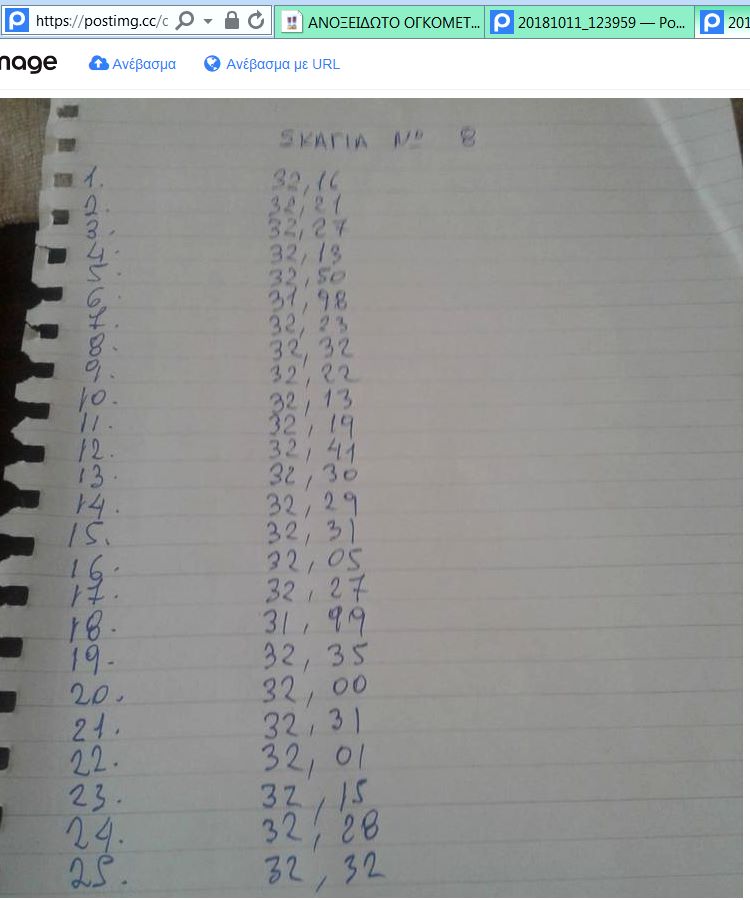 https://postimg.cc/c
ΑΝΟΞΕΙΔΩΤΟ ΟΓΚΟΜΕΤ...
20181011_123959 — Po...
201
mage
Ανέβασμα
Ανέβασμα με URL
SΚΑΓΙΑ Νº 8
1. 32,16
2. 32,21
3. 32,27
4. 32,13
5. 32,50
6. 31,98
7. 32,23
8. 32,32
9. 32,22
10. 32,13
11. 32,19
12. 32,41
13. 32,30
14. 32,29
15. 32,31
16. 32,05
17. 32,27
18. 31,99
19. 32,35
20. 32,00
21. 32,31
22. 32,01
23. 32,15
24. 32,28
25. 32,32